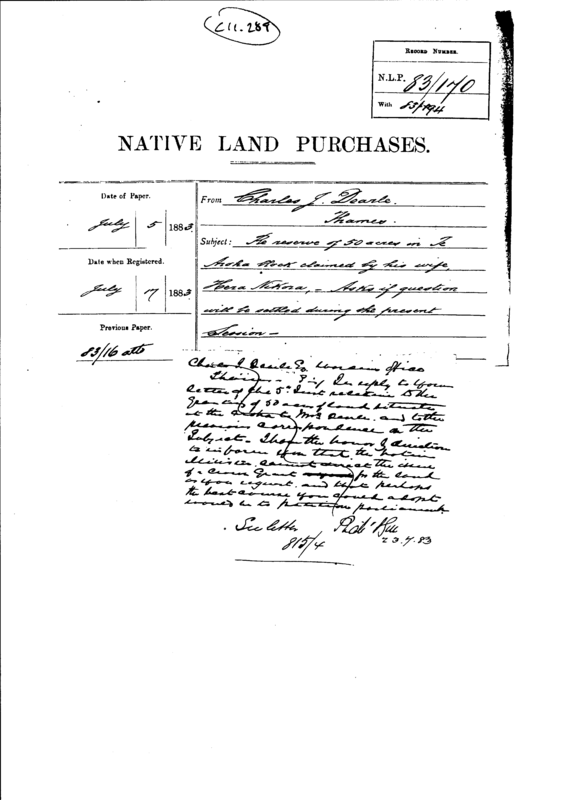 C11.289
RECORD NUMBER.
N.L.P. 83/170
With 83/194
NATIVE LAND PURCHASES.
Date of Paper.
July 5 1883.
Date when Registered.
July 17 1883
Previous Paper.
83/16 atto
From Charles J. Dearle.
Thames.
Subject: Re reserve of 50 acres in Te
Aroha Block claimed by his wife,
Hera Nikora, – Asks if question
will be settled during the present
Session –
Office
Sir In reply to your
letter of the 5th Inst relative to the
granting of 50 acres of land situate
at the Aroha to Mrs Dearle and to the
previous correspondence on the
Subject. I have the honor by direction
to inform you that the Native
Minister cannot direct the issue
of a Crown Grant for the land
as you request and that perhaps
the best course you could adopt
would be to petition parliament
See letter
815/4
23.7.83